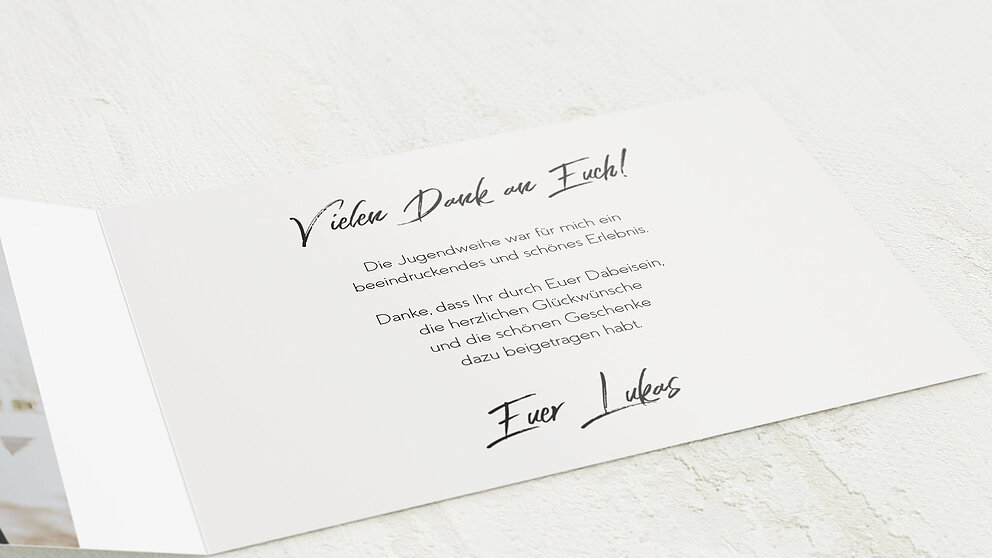 Vielen Dank an Euch!
Die Jugendweihe war für mich ein
beeindruckendes und schönes Erlebnis.
Danke, dass Ihr durch Euer Dabeisein,
die herzlichen Glückwünsche
und die schönen Geschenke
dazu beigetragen habt.
Euer Lukas